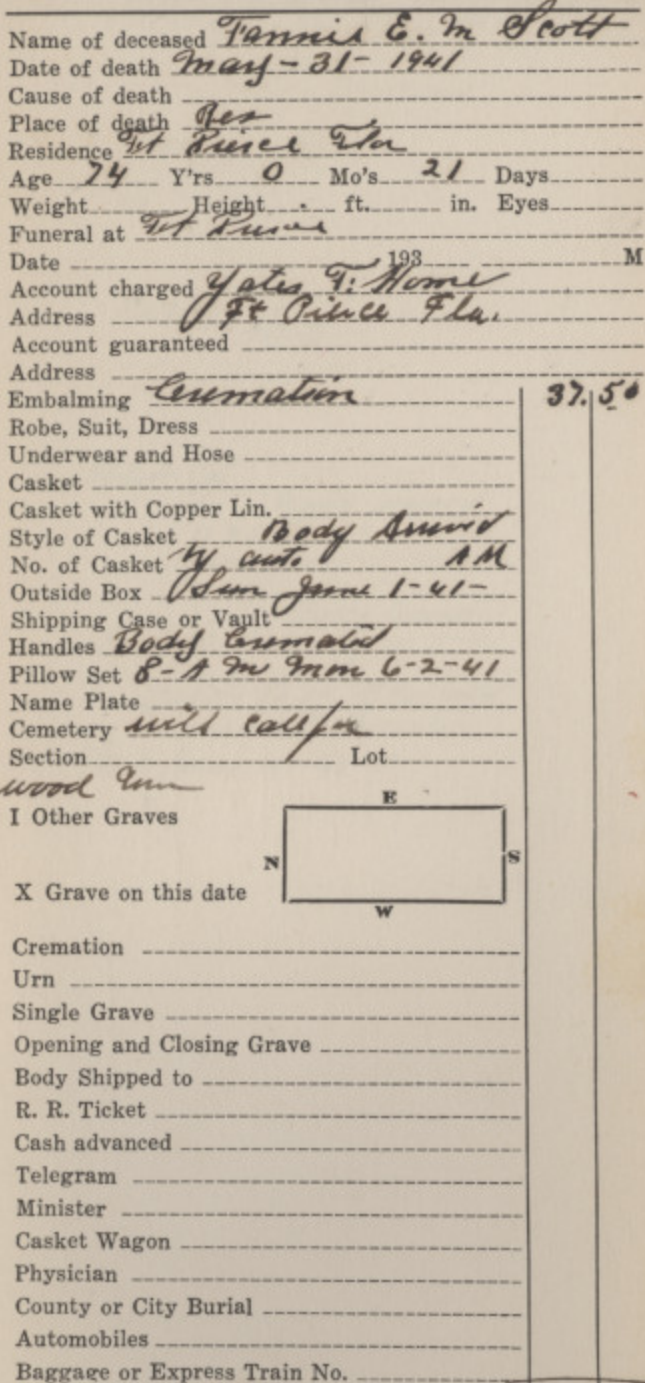 Name of deceased Fannie E. M Scott
Date of death May - 31 - 1941
Cause of death
Place of death Res
Residence Ft Pierce Fla
Age 74 Y'rs 0 Mo's 21 Days
Weight Height ft. in. Eyes
Funeral at Ft Pierce
Date 193 M
Account charged Yates F. Home
Address Ft Pierce Fla.
Account guaranteed
Address
Embalming Cremation 37.50
Robe, Suit, Dress
Underwear and Hose
Casket
Casket with Copper Lin.
Style of Casket Body Arrived
No. of Casket by auto AM
Outside Box Sun June 1-41-
Shipping Case or Vault
Handles Body Cremated
Pillow Set 8-A M Mon 6-2-41
Name Plate
Cemetery will call for
Section Lot
wood Urn
E
I Other Graves
N S
X Grave on this date
W
Cremation
Urn
Single Grave
Opening and Closing Grave
Body Shipped to
R. R. Ticket
Cash advanced
Telegram
Minister
Casket Wagon
Physician
County or City Burial
Automobiles
Baggage or Express Train No.